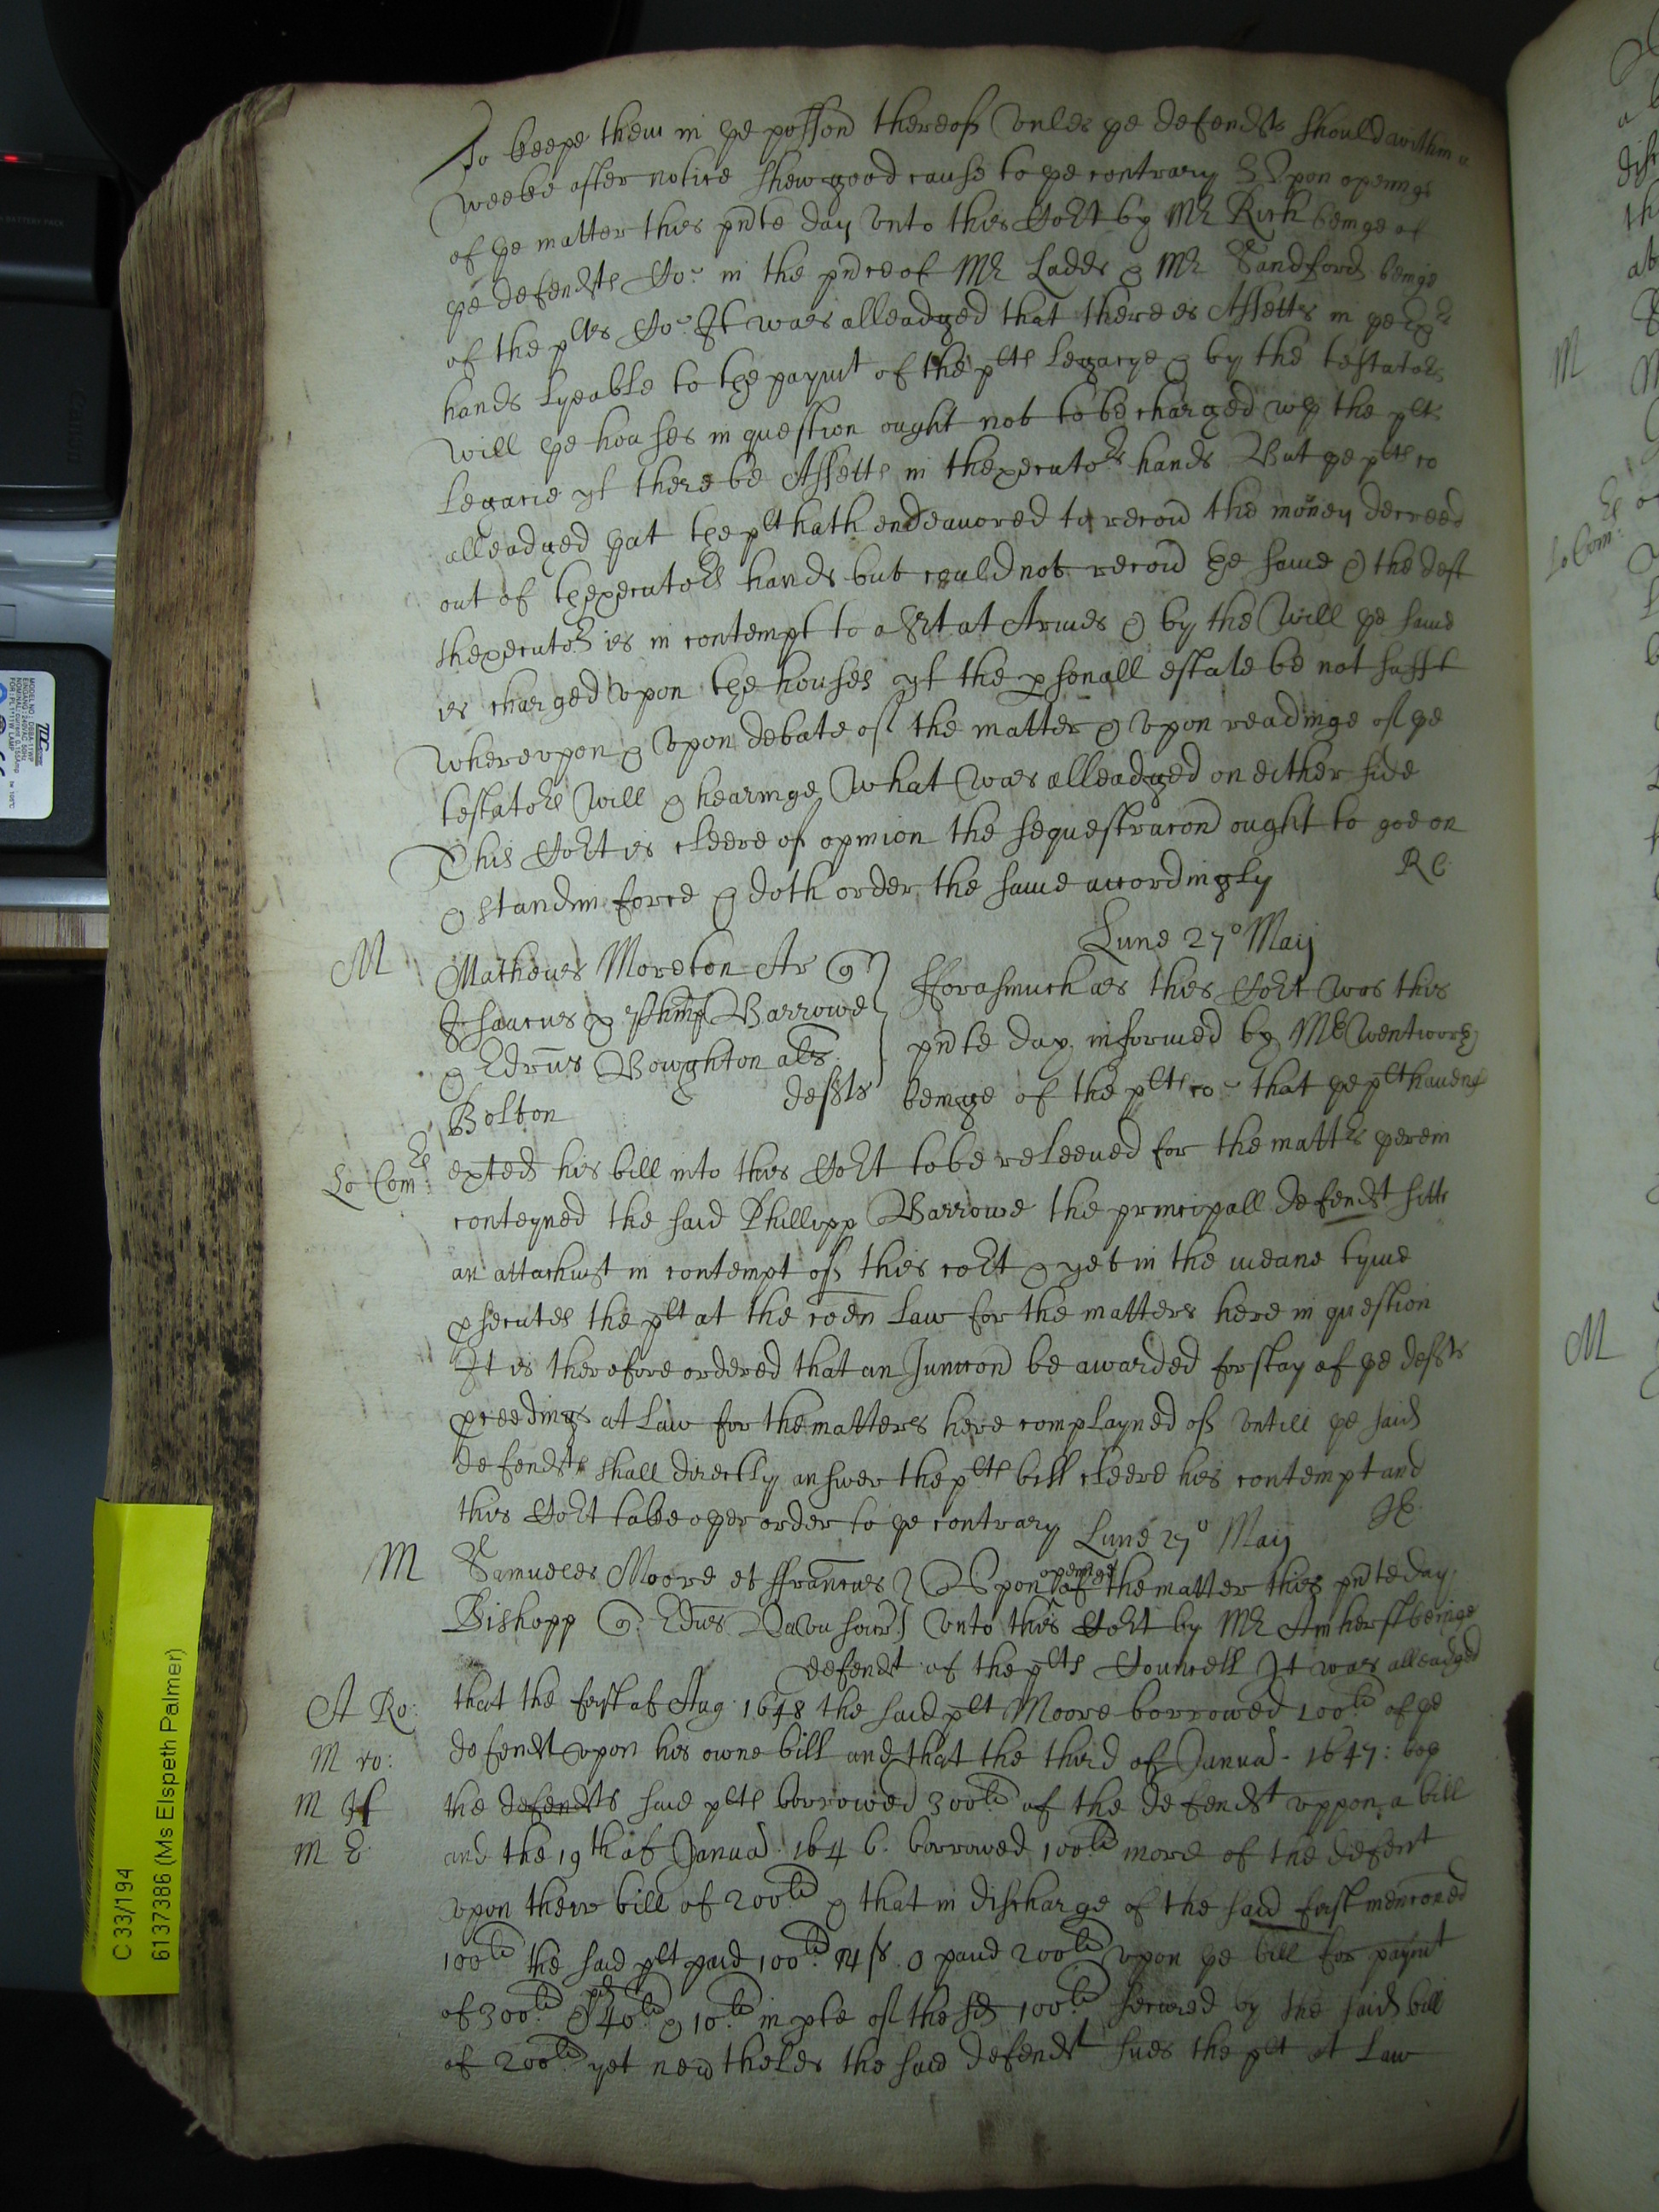 To keepe them in ye possion thereof vnles ye defendts should within a
weeke after notice shew good cause to ye contrary Vpon openinge
of ye matter this pnte day vnto this Cort by Mr Rich beinge of
ye defendts Co: in the pnce of Mr Ladds & Mr Sandford beinge
of the plts Co: It was alleadged that there is Assetts in ye
hands lyeable to the paymt of the plts legacye & by the testators
will ye houses in question ought not to be charged wth the plts
legacie yf there be Assetts in thexecutors hands But ye plts co
alleadged that the plt hath endeauored to recou the money decreed
out of thexecutors hands but could not recou ye same & the deft
thexecutor is in contempt to a Srt at Armes & by the will ye same
is charged vpon the houses yf the psonall estate be not sufft
wherevpon & vpon debate of the matter & vpon readinge of ye
testators will & hearinge what was alleadged on either side
This Cort is cleere of opinion the sequestracon ought to goe on
& stand in force & doth order the same accordingly
RC
Lune 27o Maij
M
Matheus Moreton Ar
Isaacus & Phillip Barrowe
& Edrus Boughton als
Bolton
defts
fforasmuch as this Cort was this
pnte day informed by Mr Wentworth
beinge of the plts co that ye plt haueng
El
Lo Com:
exted his bill into this Cort to be releeued for the matters therein
conteyned the said Phillipp Barrowe the principall defendt sitts
an attachmt in contempt of this cort & yet in the meane tyme
psecutes the plt at the coen Law for the matters here in question
It is therefore ordered that an Junccon be awarded for stay of ye defts
pceedings at Law for the matters here complayned of vntill ye said
defendts shall directly answer the plts bill cleere his contempt and
this Cort take other order to ye contrary
Lune 27o Maij
M
Samueles Moore et ffrancus
Bishopp
defendt
Vpon openinge of the matter this pnte day
vnto this Cort by Mr Amherst beinge
of the plts Councell It was alleadged
A Ro:
M ro:
M
M E
that the first of Aug: 1648 the said plt Moore borrowed 100li of ye
defendt vpon his owne bill and that the third of Januar 1647: both
the defendts said plts borrowed 300li of the defendt vppon a bill
and the 19th of Januar: 1646. borrowed 100li more of the defent
vpon their bill of 200li & that in discharge of the said first menconed
100li the said plt paid 100li 14s & paid 200li vpon ye bill for paymt
of 300li & pd 40li & 10li in pte of the sd 100li secured by the said bill
of 200li yet neuertheles the said defendt sues the plt at Law
C 33/194
6137386 (Ms Elspeth Palmer)